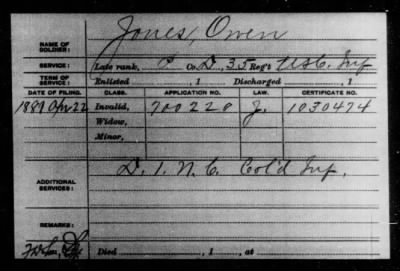 Jones, Owen
NAME OF SOLDIER:
SERVICE: Late rank, P Co. D, 35 Reg't U.S.C. Inf
TERM OF SERVICE: Enlisted , 1 Discharged , 1
DATE OF FILING. CLASS. APPLICATION NO. LAW. CERTIFICATE NO.
1889 Apr 22 Invalid, 700228 J. 1030474
Widow,
Minor,
ADDITIONAL SERVICES: D. 1. N. C. Col'd Inf.
REMARKS:
Died , 1 , at